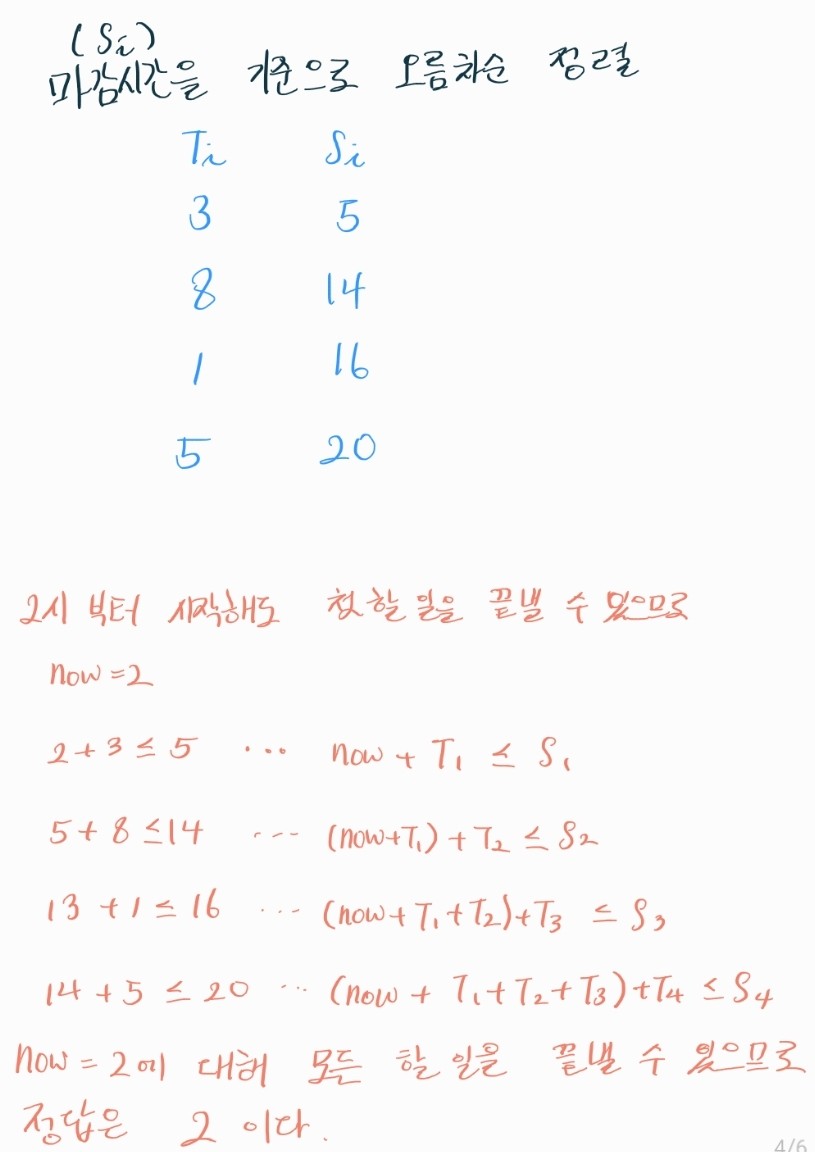 (Si)
마감시간을 기준으로 오름차순 정렬
Ti Si
3 5
8 14
1 16
5 20
2시 부터 시작해도 첫 할 일을 끝낼 수 있으므로
now = 2
2 + 3 ≤ 5 ... now + T₁ ≤ S₁
5 + 8 ≤ 14 ... (now+T₁) + T₂ ≤ S₂
13 + 1 ≤ 16 ... (now + T₁ + T₂) + T₃ ≤ S₃
14 + 5 ≤ 20 ... (now + T₁ + T₂ + T₃) + T₄ ≤ S₄
now = 2에 대해 모든 할 일을 끝낼 수 있으므로
정답은 2 이다.
4/6